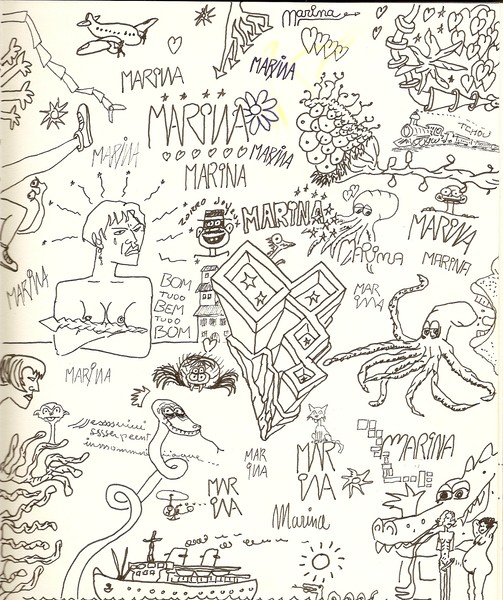 Marina
MARINA
MARINA
MARINA
TCHOU
MARINA
MARINA
MARINA
MARINA
MARINA
MARINA
MARINA
MARINA
BOM
TUDO
BEM
TUDO
BOM
MAR
INA
MARINA
MARINA
MARINA
MAR
INA
MAR
INA
MAR
INA
Marina